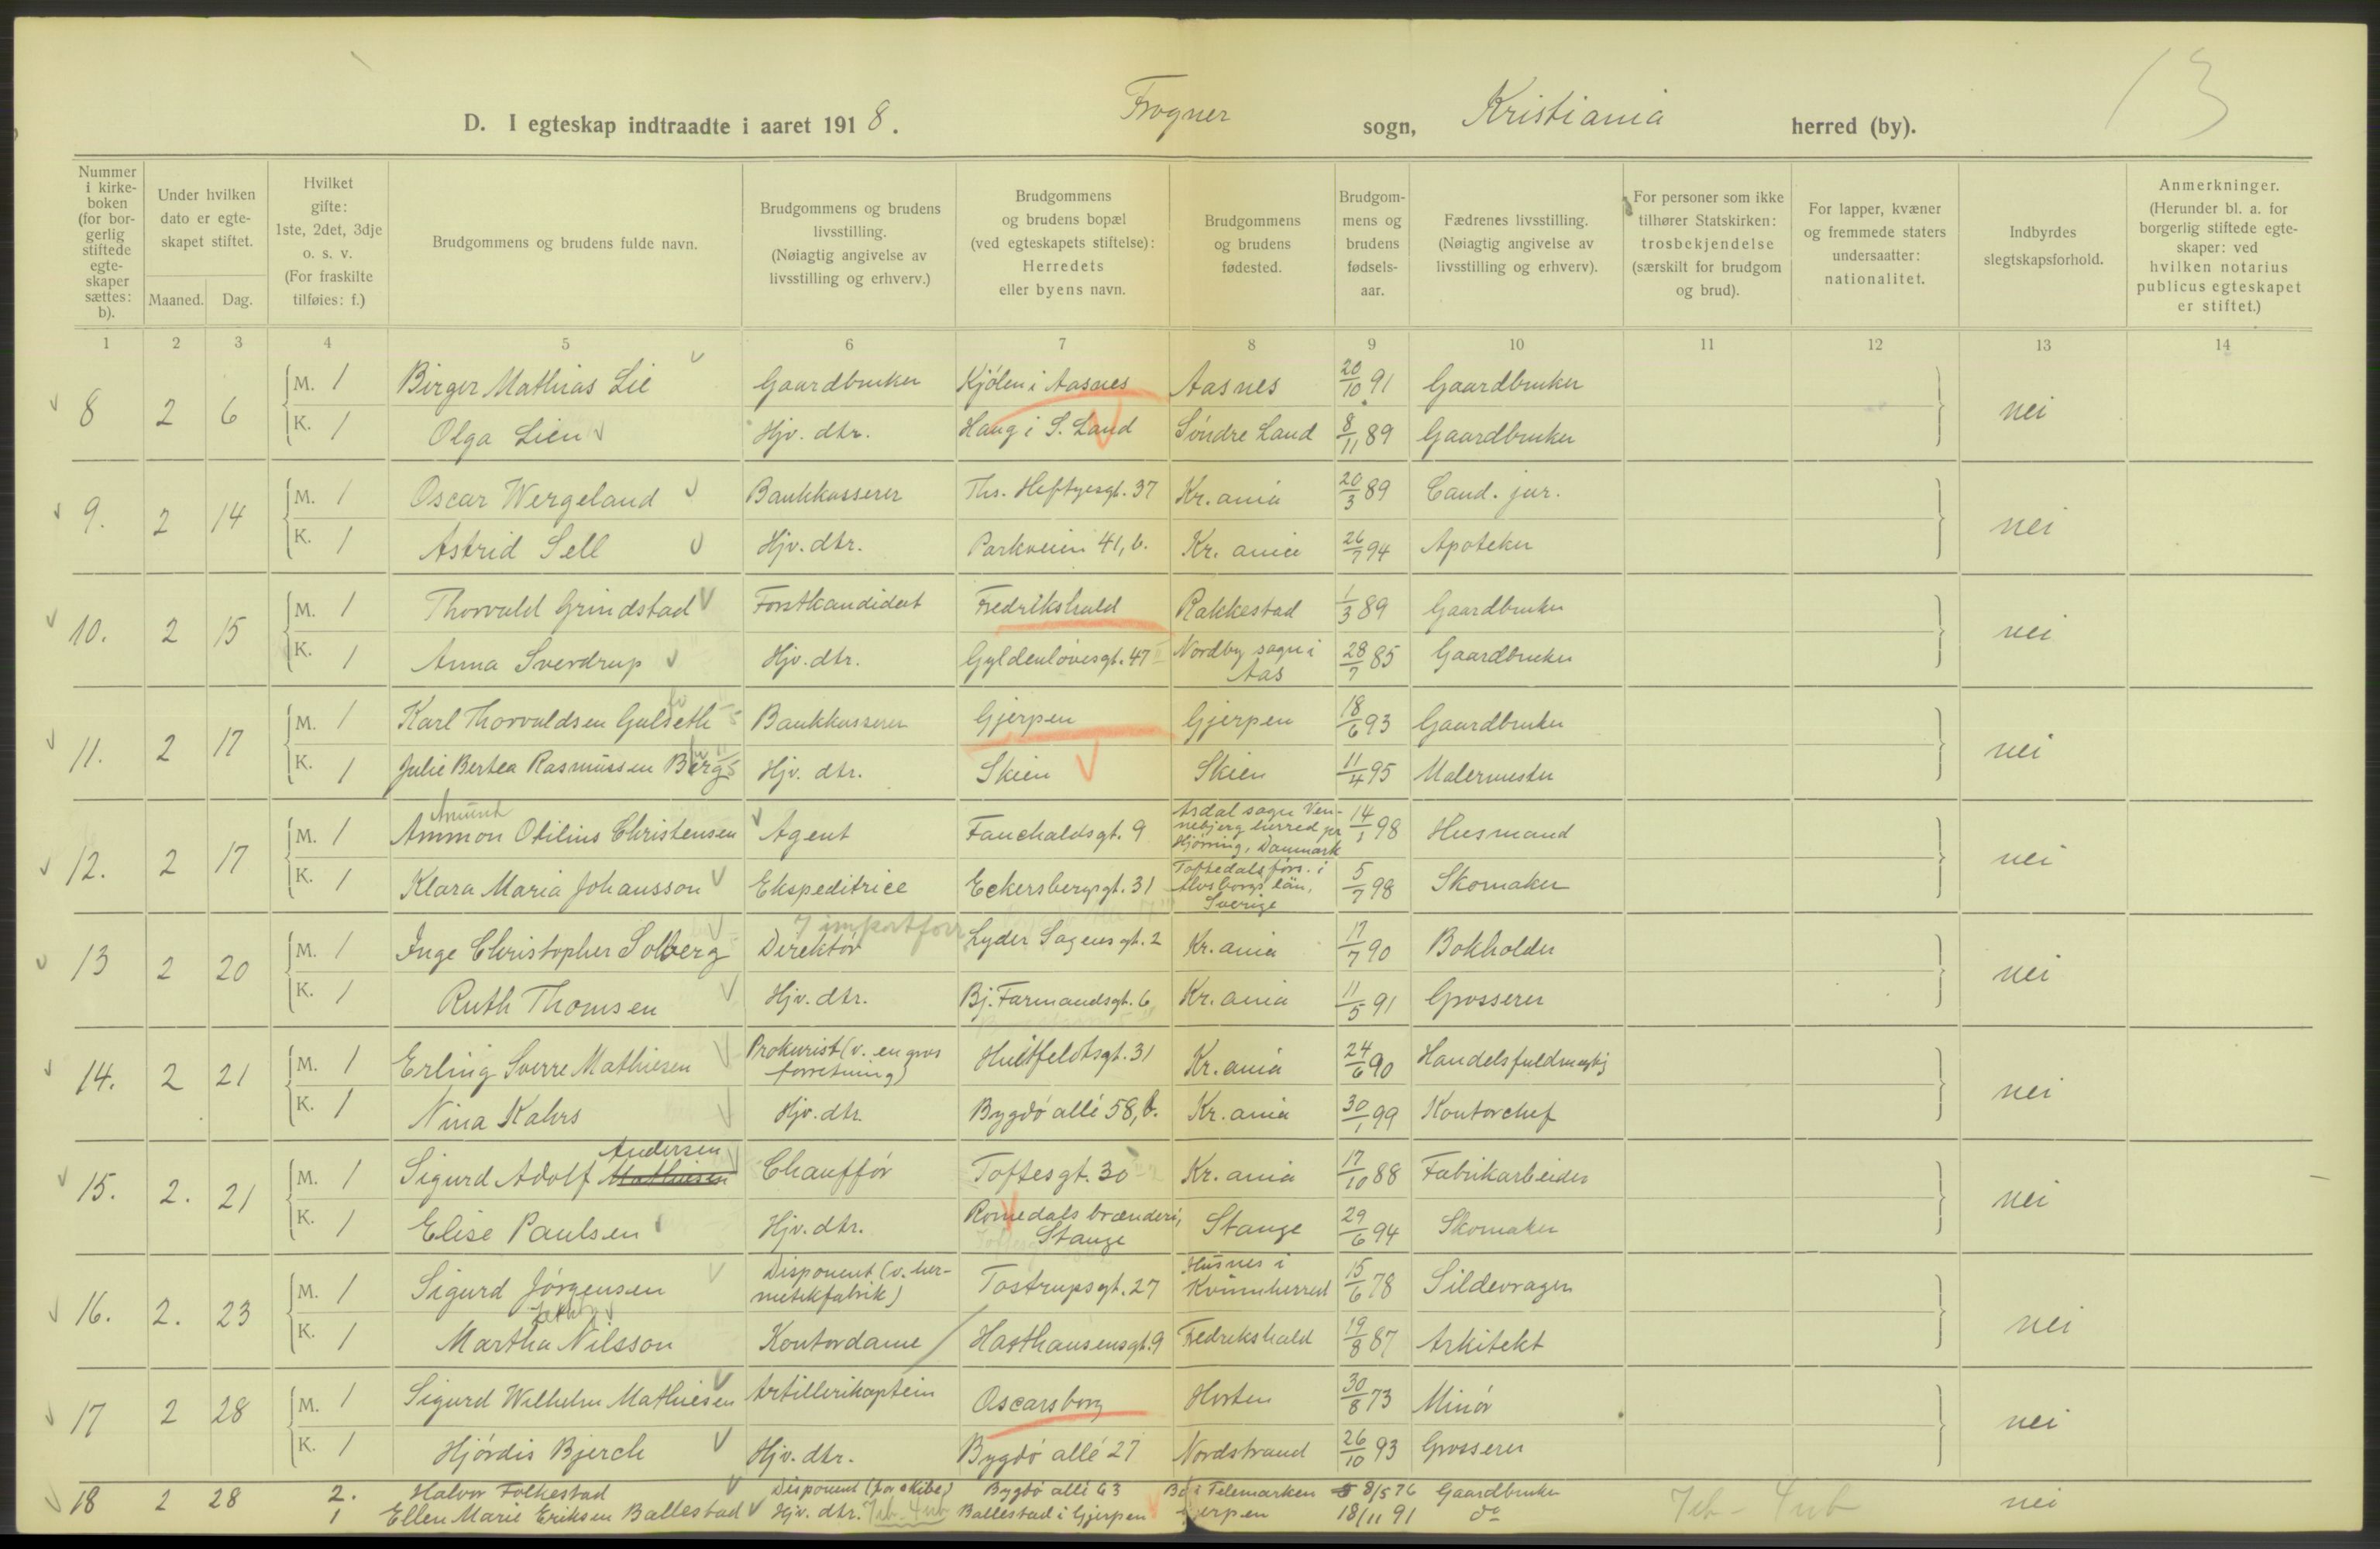 13
D. I egteskap indtraadte i aaret 1918. Frogner sogn, Kristiania herred (by).
Nummer i kirke-boken (for bor-gerlig stiftede egte-skaper sættes: b).
Under hvilken dato er egte-skapet stiftet.
Maaned. Dag.
Hvilket gifte: 1ste, 2det, 3dje o. s. v. (For fraskilte tilføies: f.)
Brudgommens og brudens fulde navn.
Brudgommens og brudens livsstilling. (Nøiagtig angivelse av livsstilling og erhverv.)
Brudgommens og brudens bopæl (ved egteskapets stiftelse): Herredets eller byens navn.
Brudgommens og brudens fødested.
Brudgom-mens og brudens fødsels-aar.
Fædrenes livsstilling. (Nøiagtig angivelse av livsstilling og erhverv).
For personer som ikke tilhører Statskirken: trosbekjendelse (særskilt for brudgom og brud).
For lapper, kvæner og fremmede staters undersaatter: nationalitet.
Indbyrdes slegtskapsforhold.
Anmerkninger. (Herunder bl. a. for borgerlig stiftede egte-skaper: ved hvilken notarius publicus egteskapet er stiftet.)
1 2 3 4 5 6 7 8 9 10 11 12 13 14
8 2 6 M. 1 Birger Mathias Lie Gaardbruker Kjølen i Aasnes Aasnes 20/10 91 Gaardbruker nei
K. 1 Olga Lien Hjv. dtr. Haug i S. Land Søndre Land 8/11 89 Gaardbruker
9. 2 14 M. 1 Oscar Wergeland Bankkasserer Ths. Heftyesgt. 37 Kr.ania 20/3 89 Cand. jur. nei
K. 1 Astrid Sell Hjv. dtr. Parkveien 41, b. Kr. ania 26/7 94 Apoteker
10. 2 15 M. 1 Thorvald Grindstad Forstkandidat Fredrikshald Rakkestad 1/3 89 Gaardbruker nei
K. 1 Anna Sverdrup Hjv. dtr. Gyldenløvesgt. 47 Nordby sogn i Aas 28/7 85 Gaardbruker
11. 2 17 M. 1 Karl Thorvaldsen Gulseth Bankkasserer Gjerpen Gjerpen 18/6 93 Gaardbruker nei
K. 1 Julie Bertea Rasmussen Berg Hjv. dtr. Skien Skien 11/4 95 Malermester
12. 2 17 M. 1 Ammon Otilius Christensen Agent Fauchaldsgt. 9 Asdal sogn Ven-nebjerg herred pr Hjørring, Danmark 14/1 98 Husmand nei
K. 1 Klara Maria Johansson Ekspeditrice Eckersbergsgt. 31 Toftedals förs. i Älvsborgs län, Sverige 5/7 98 Skomaker
13 2 20 M. 1 Inge Christopher Solberg Direktør i importforr. Lyder Sagens gt. 2 Kr.ania 17/7 90 Bokholder nei
K. 1 Ruth Thomsen Hjv. dtr. Bj. Farmandsgt. 6 Kr. ania 11/5 91 Grosserer
14. 2 21 M. 1 Erling Sverre Mathiesen Prokurist (v. en gros forretning) Huitfeldtsgt. 31 Kr.ania 24/6 90 Handelsfuldmægtig nei
K. 1 Nina Kahrs Hjv. dtr. Bygdø allé 58, b. Kr. ania 30/1 99 Kontorchef
15. 2. 21 M. 1 Sigurd Adolf Mathiesen Andersen Chauffør Toftesgt. 30 Kr. ania 17/10 88 Fabrikarbeider nei
K. 1 Elise Paulsen Hjv. dtr. Romedals brænderi, Stange Stange 29/6 94 Skomaker
16. 2. 23 M. 1 Sigurd Jørgensen Disponent (v. her-metikfabrik) Tostrupsgt. 27 Husnes i Kvinnherred 15/6 78 Sildevrager nei
K. 1 Martha Nilsson Kontordame Harthausensgt. 9 Fredrikshald 19/8 87 Arkitekt
17 2 28 M. 1 Sigurd Wilhelm Mathiesen Artillerikaptein Oscarsborg Horten 30/8 73 Minør nei
K. 1 Hjördis Bjerch Hjv. dtr. Bygdø allé 27 Nordstrand 26/10 93 Grosserer
18 2 28 2. Halvor Folkestad Disponent (for skibe) Bygdø allé 63 Bø i Telemarken 8/5 76 Gaardbruker nei
1 Ellen Marie Eriksen Ballestad Hjv. dtr. Ballestad i Gjerpen Gjerpen 18/11 91 do